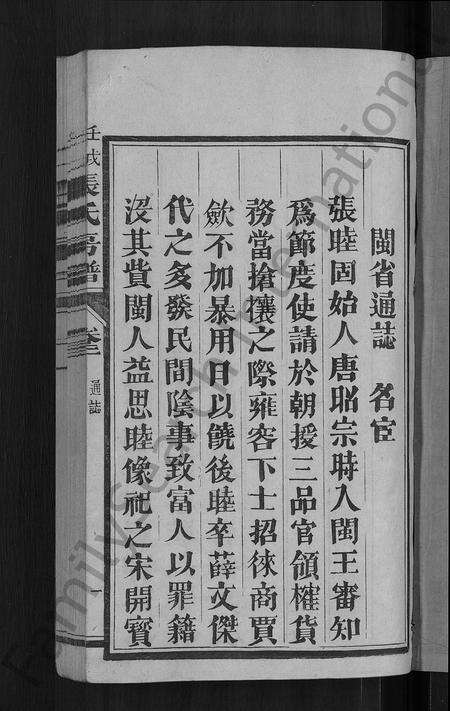 閩省通誌　名宦
張睦固始人唐昭宗時入閩王審知
為節度使請於朝授三品官領榷貨
務當搶攘之際雍容下士招徠商賈
歛不加暴用日以饒後睦卒薛文傑
代之多發民間陰事致富人以罪籍
没其貲閩人益思睦像祀之宋開寳
壬戌張氏房譜
卷三
通誌
一
FamilySearch International